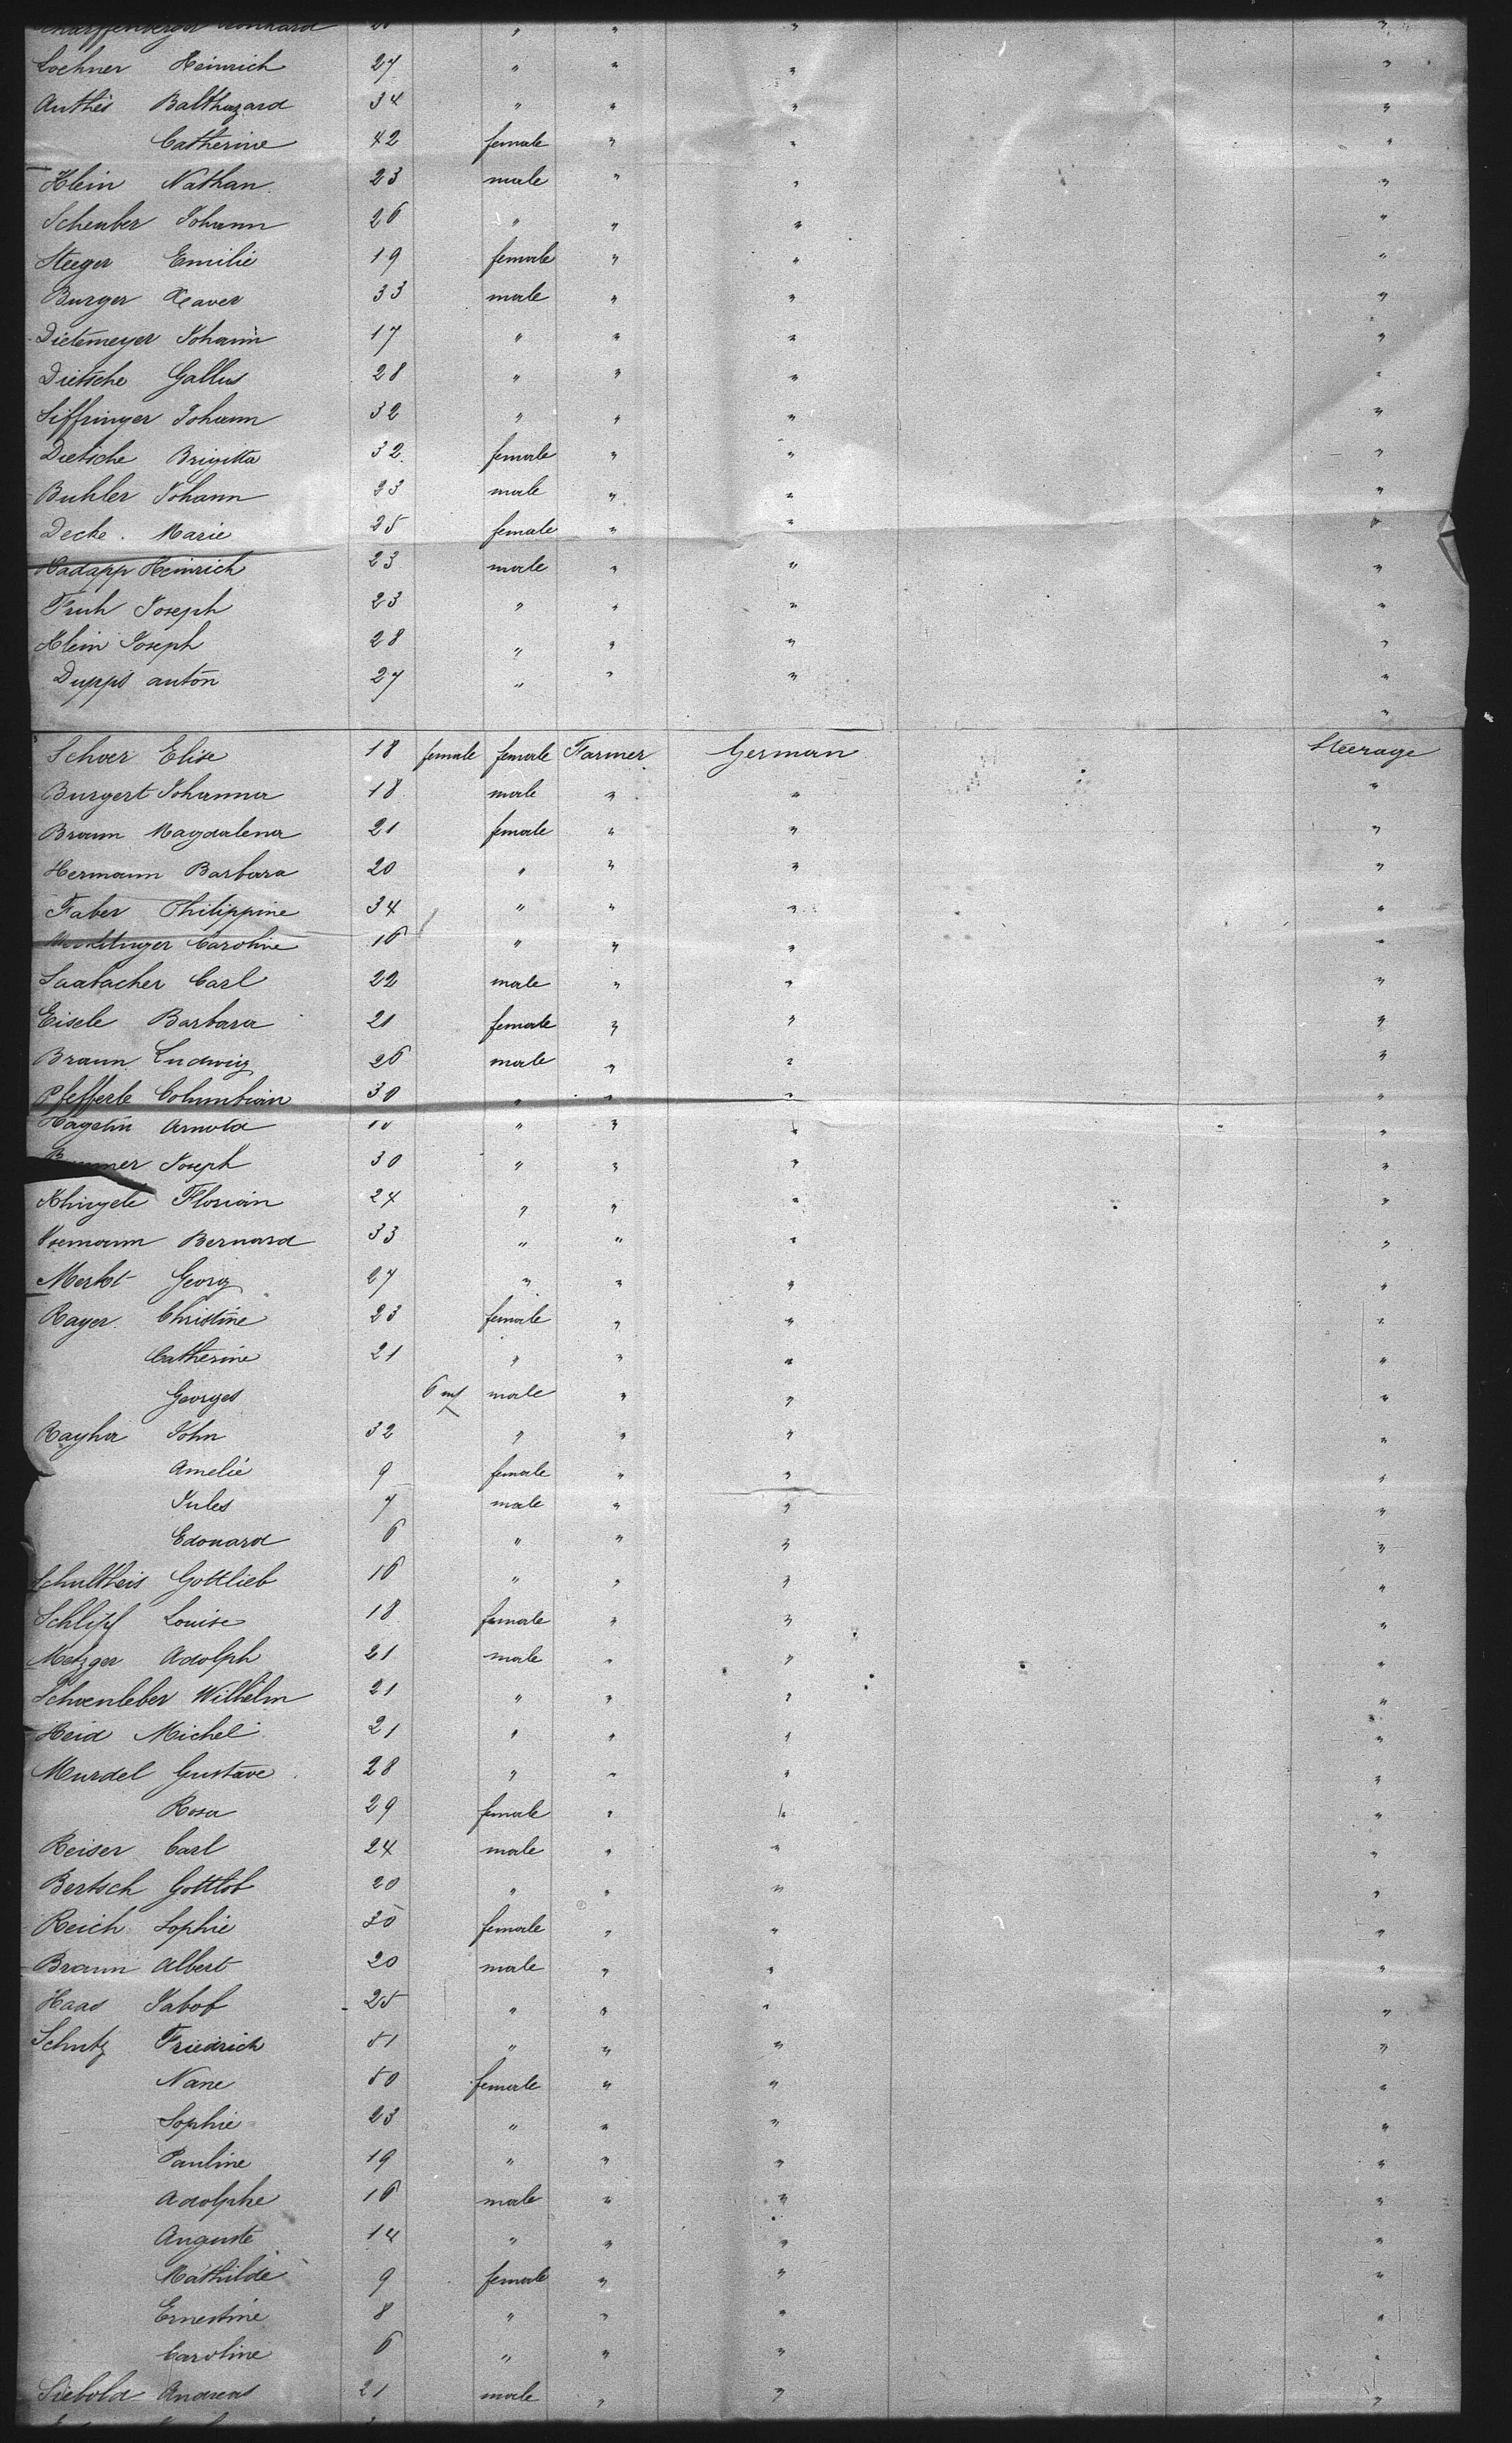 Lochner Heinrich 27 " " " "
Anthès Balthazard 34 " " " "
Catherine 42 female " " "
Klein Nathan 23 male " " "
Scheuber Johann 26 " " " "
Steeger Emilie 19 female " " "
Burger Xaver 33 male " " "
Dietemeyer Johann 17 " " " "
Dietsche Gallus 28 " " " "
Siffringer Johann 32 " " " "
Dietsche Brigitta 32 female " " "
Buhler Johann 23 male " " "
Decke Marie 25 female " " "
Hadapp Heinrich 23 male " " "
Fruh Joseph 23 " " " "
Klein Joseph 28 " " " "
Dupps anton 27 " " " "
Schoer Elise 18 female female Farmer German Steerage
Burgert Johanna 18 male " " "
Braun Magdalena 21 female " " "
Hermann Barbara 20 " " " "
Faber Philippine 34 " " " "
Caroline 16 " " " "
Saabacher Carl 22 male " " "
Eisele Barbara 21 female " " "
Braun Ludwig 26 male " " "
Pfefferle Columbian 30 " " " "
Arnold " " " "
Joseph 30 " " " "
Klingele Florian 24 " " " "
Isemann Bernard 33 " " " "
Merkt Georg 27 " " " "
Rayer Christine 23 female " " "
Catherine 21 " " " "
Georges 6 mt male " " "
Rayher John 32 " " " "
Amelie 9 female " " "
Jules 7 male " " "
Edouard 6 " " " "
Schultheis Gottlieb 16 " " " "
Schlipf Louise 18 female " " "
Metzger Adolph 21 male " " "
Schoenleber Wilhelm 21 " " " "
Heid Michel 21 " " " "
Murdel Gustave 28 " " " "
Rosa 29 female " " "
Reiser Carl 24 male " " "
Bertsch Gottlob 20 " " " "
Reich Sophie 30 female " " "
Braun Albert 20 male " " "
Haas Jakob 25 " " " "
Schutz Friedrich 51 " " " "
Nane 50 female " " "
Sophie 23 " " " "
Pauline 19 " " " "
Adolphe 16 male " " "
Auguste 14 " " " "
Mathilde 9 female " " "
Ernestine 8 " " " "
Caroline 6 " " " "
Siebold Andreas 21 male " " "